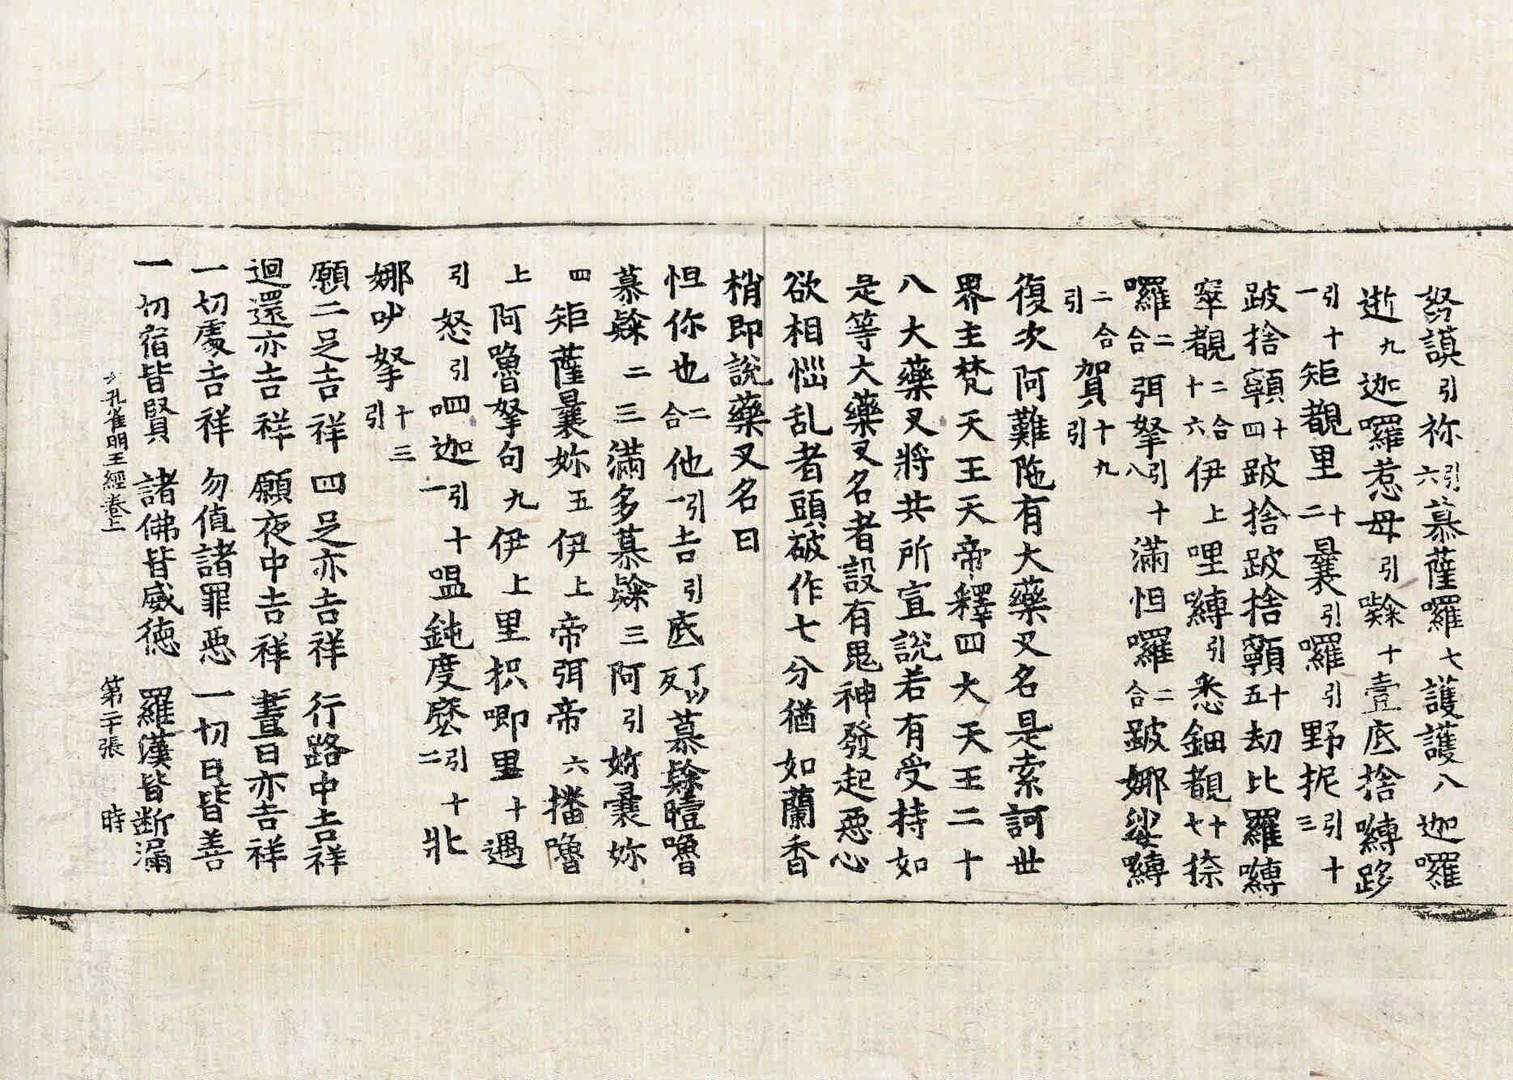 努謨引祢引六慕薩囉七護護八迦囉
逝九迦囉惹母引𡃤十壹底捨嚩跢
引十一矩覩里十二曩引囉引野抳引十三
跛捨顊十四跛捨跛捨顊十五劫比羅嚩
窣覩二合十六伊上哩嚩引悉鈿覩十七捺
囉二合弭拏引十八滿怛囉二合跛娜娑嚩
二合引賀引十九
復次阿難陁有大藥叉名是索訶世
界主梵天王天帝釋四大天王二十
八大藥叉將共所宣說若有受持如
是等大藥叉名者設有鬼神發起惡心
欲相惱乱者頭破作七分猶如蘭香
梢即說藥叉名曰
怛你也二合他引一吉引底丁以反慕𡃤曀嚕
慕𡃤二三滿多慕𡃤三阿引妳曩妳
四矩薩曩妳五伊上帝弭帝六播嚕
上阿嚕拏句九伊上里枳唧里十遇
引怒引四迦引十一嗢鈍度麼引十二牝
娜吵拏引十三
願二足吉祥 四足亦吉祥 行路中吉祥
迴還亦吉祥 願夜中吉祥 晝日亦吉祥
一切處吉祥 勿值諸罪惡 一切日皆善
一切宿皆賢 諸佛皆威徳 羅漢皆断漏
孔雀明王經卷上 第二十張 時